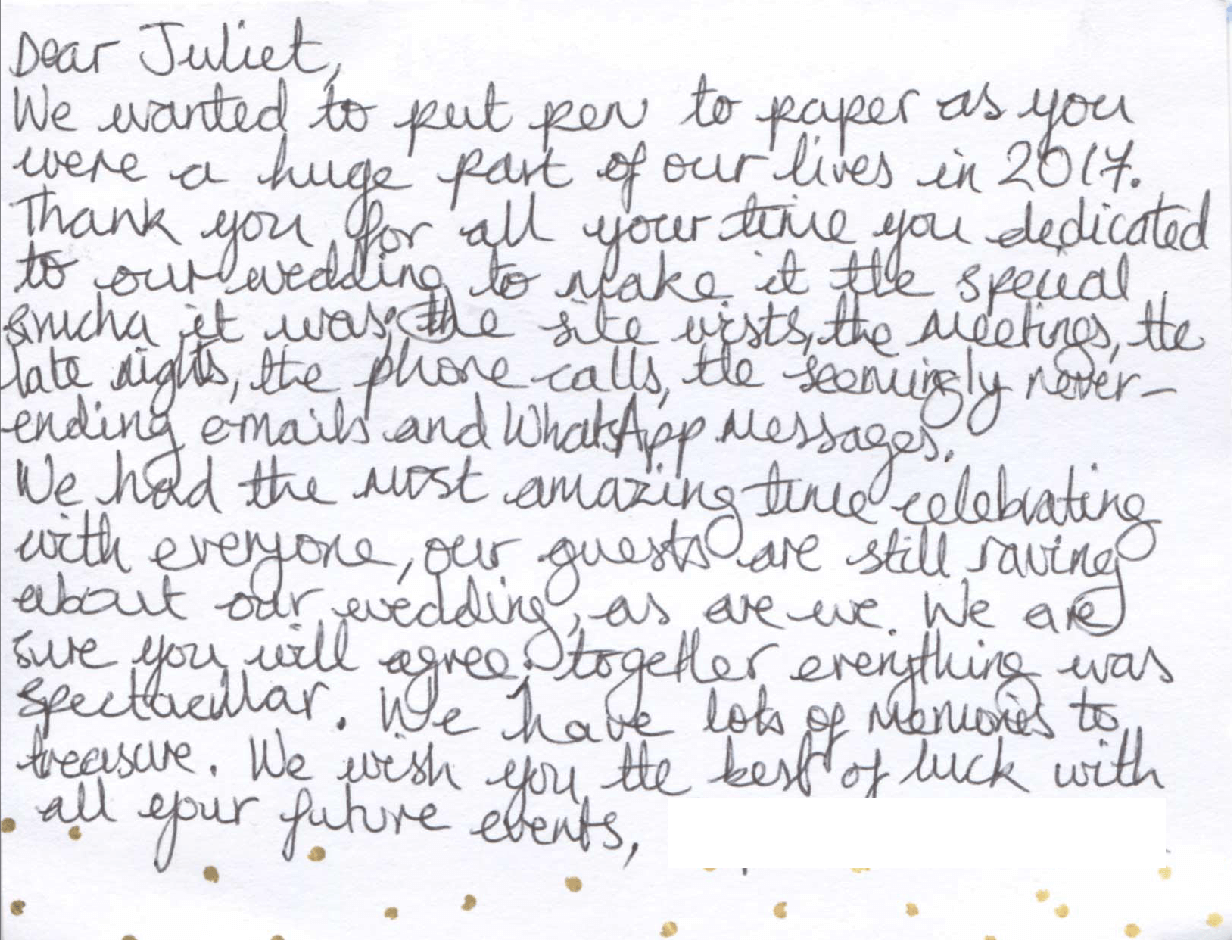 Dear Juliet,
We wanted to put pen to paper as you
were a huge part of our lives in 2017.
Thank you for all your time you dedicated
to our wedding to make it the special
simcha it was: the site visits, the meetings, the
late nights, the phone calls, the seemingly never-
ending emails and WhatsApp messages.
We had the most amazing time celebrating
with everyone, our guests are still raving
about our wedding, as are we. We are
sure you will agree, together everything was
spectacular. We have lots of memories to
treasure. We wish you the best of luck with
all your future events,